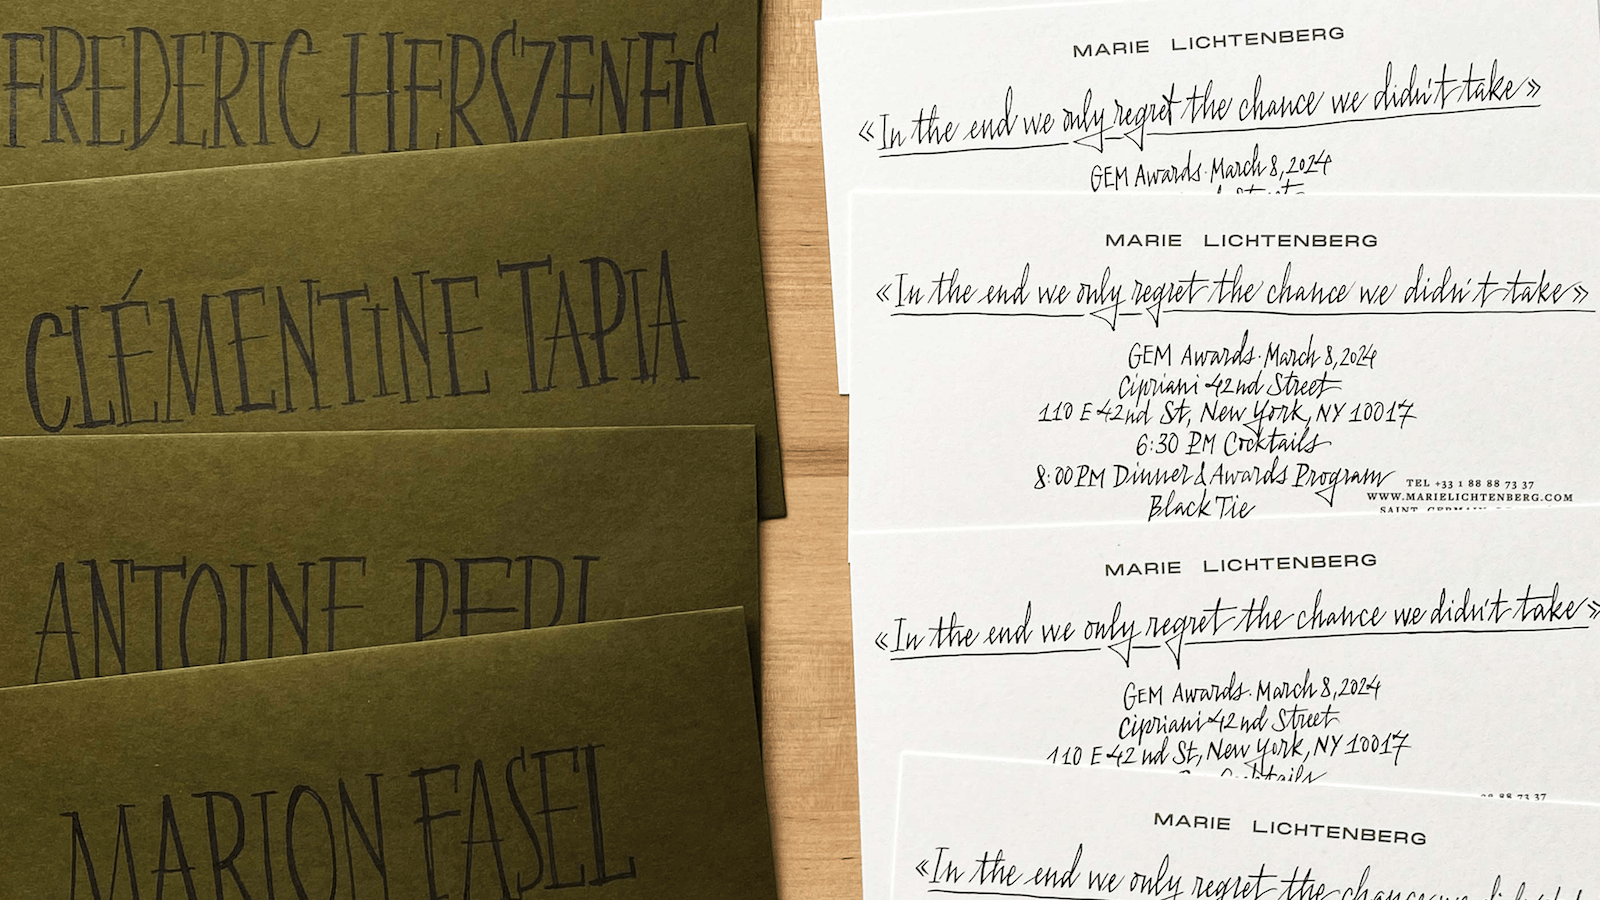 FREDERIC HERSZENFIS
CLÉMENTINE TAPIA
ANTOINE
MARION FASEL
MARIE LICHTENBERG
«In the end we only regret the chance we didn't take»
GEM Awards · March 8, 2024
MARIE LICHTENBERG
«In the end we only regret the chance we didn't take»
GEM Awards · March 8, 2024
Cipriani 42nd Street
110 E 42nd St, New York, NY 10017
6:30 PM Cocktails
8:00 PM Dinner & Awards Program
Black Tie
TEL +33 1 88 88 73 37
WWW.MARIELICHTENBERG.COM
MARIE LICHTENBERG
«In the end we only regret the chance we didn't take»
GEM Awards · March 8, 2024
Cipriani 42nd Street
110 E 42nd St, New York, NY 10017
Cocktails
88 73 37
MARIE LICHTENBERG
«In the end we only regret the chance we